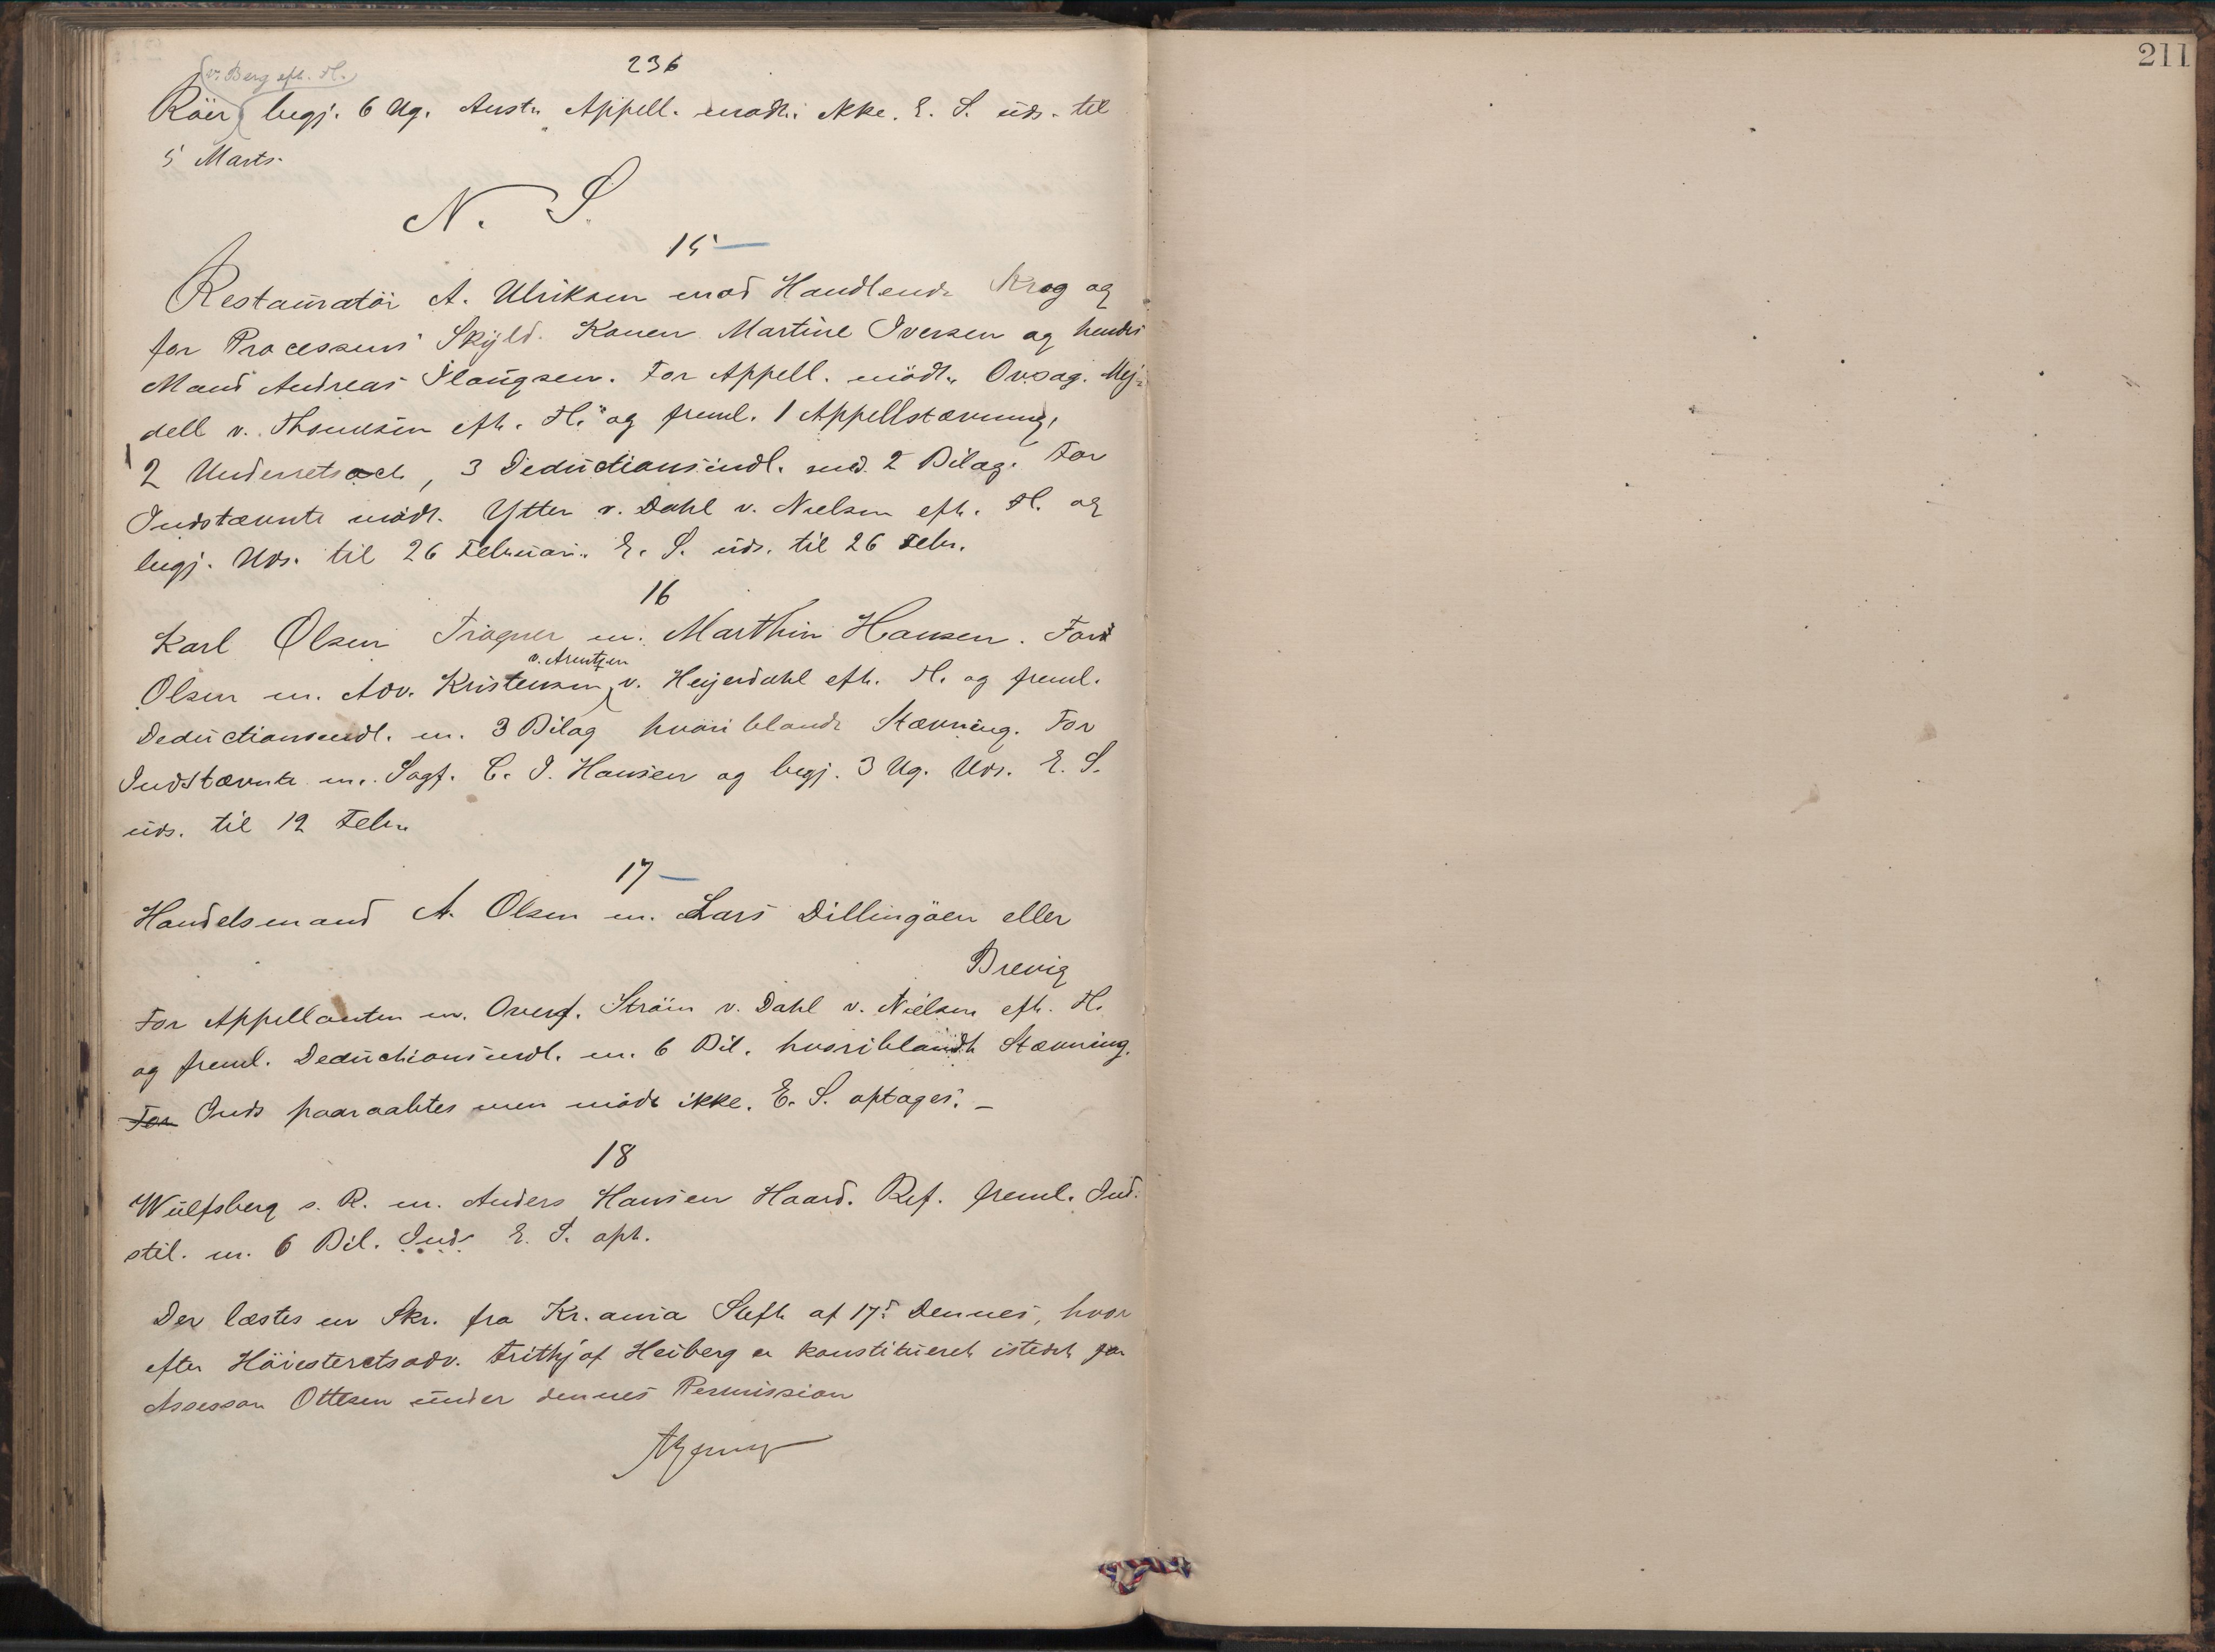 236
(v. Berg eft. H.)
Röer begj. 6 Ug. Anst. Appell. mödte ikke. E. S. uds. til
5 Marts.
N. S.
15
Restauratör A. Ulriksen mod Handlende Krog og
for Processens Skyld. Konen Martine Iversen og hendes
Mand Andreas Ilaugsen. For Appell. mödte Ovsag. Mej-
dell v. Thomesen eft. H. og freml. 1 Appellstævning,
2 Underretsact, 3 Deductionsindl. med 2 Bilag. For
Indstævnte mödt. Ytter v. Dahl v. Nielsen eft. H. og
begj. Uds. til 26 Februar. E. S. uds. til 26 Febr.
16
Karl Olsen Trögner m. Marthin Hansen. For
Olsen m. Adv. Kristensen v. Arentzen v. Heyerdahl eft. H. og freml.
Deductionsindl. m. 3 Bilag hvoriblandt Stævning. For
Indstævnte m. Sagf. C. J. Hansen og begj. 3 Ug. Uds. E. S.
uds. til 12 Febr.
17
Handelsmand A. Olsen m. Lars Dillingöen eller
Brevig
For Appellanten m. Oversf. Ström v. Dahl v. Nielsen eft. H.
og freml. Deductionsindl. m. 6 Bil. hvoriblandt Stævning.
For Inds paaraabtes men mödt ikke. E. S. optages. -
18
Wulfsberg s. R. m. Anders Hansen Haard. Ref. freml. Ind-
stil. m. 6 Bil. Inds E. S. opt.
Der læstes en Skr. fra Kr.ania Stift af 17d Dennes, hvor
efter Höiesteretsadv. Frithjof Heiberg er konstitueret istedet for
Assessor Ottesen under dennes Permission
211